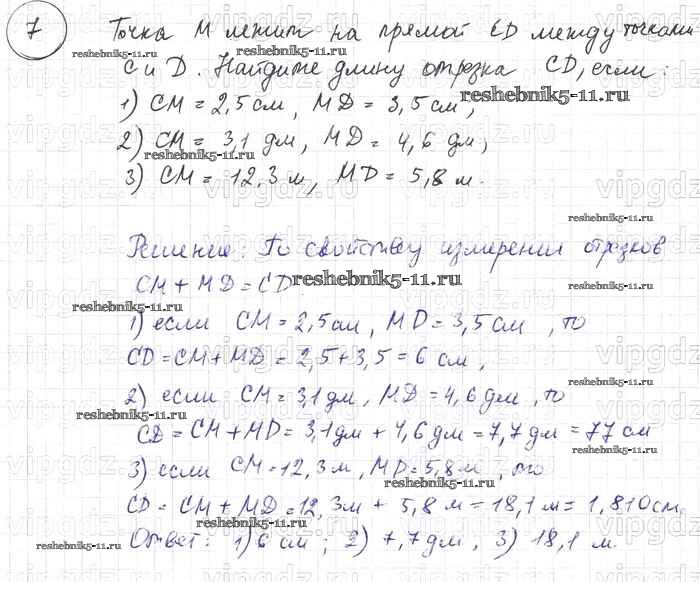 7 Точка M лежит на прямой CD между точками
C и D. Найдите длину отрезка CD, если:
1) CM = 2,5 см, MD = 3,5 см,
2) CM = 3,1 дм, MD = 4,6 дм,
3) CM = 12,3 м, MD = 5,8 м.
Решение: По свойству измерения отрезков
CM + MD = CD
1) если CM = 2,5 см, MD = 3,5 см, то
CD = CM + MD = 2,5 + 3,5 = 6 см,
2) если CM = 3,1 дм, MD = 4,6 дм, то
CD = CM + MD = 3,1 дм + 4,6 дм = 7,7 дм = 77 см
3) если CM = 12,3 м, MD = 5,8 м, то
CD = CM + MD = 12,3м + 5,8 м = 18,1 м = 1,810 см.
Ответ: 1) 6 см; 2) 7,7 дм, 3) 18,1 м.
reshebnik5-11.ru
vipgdz